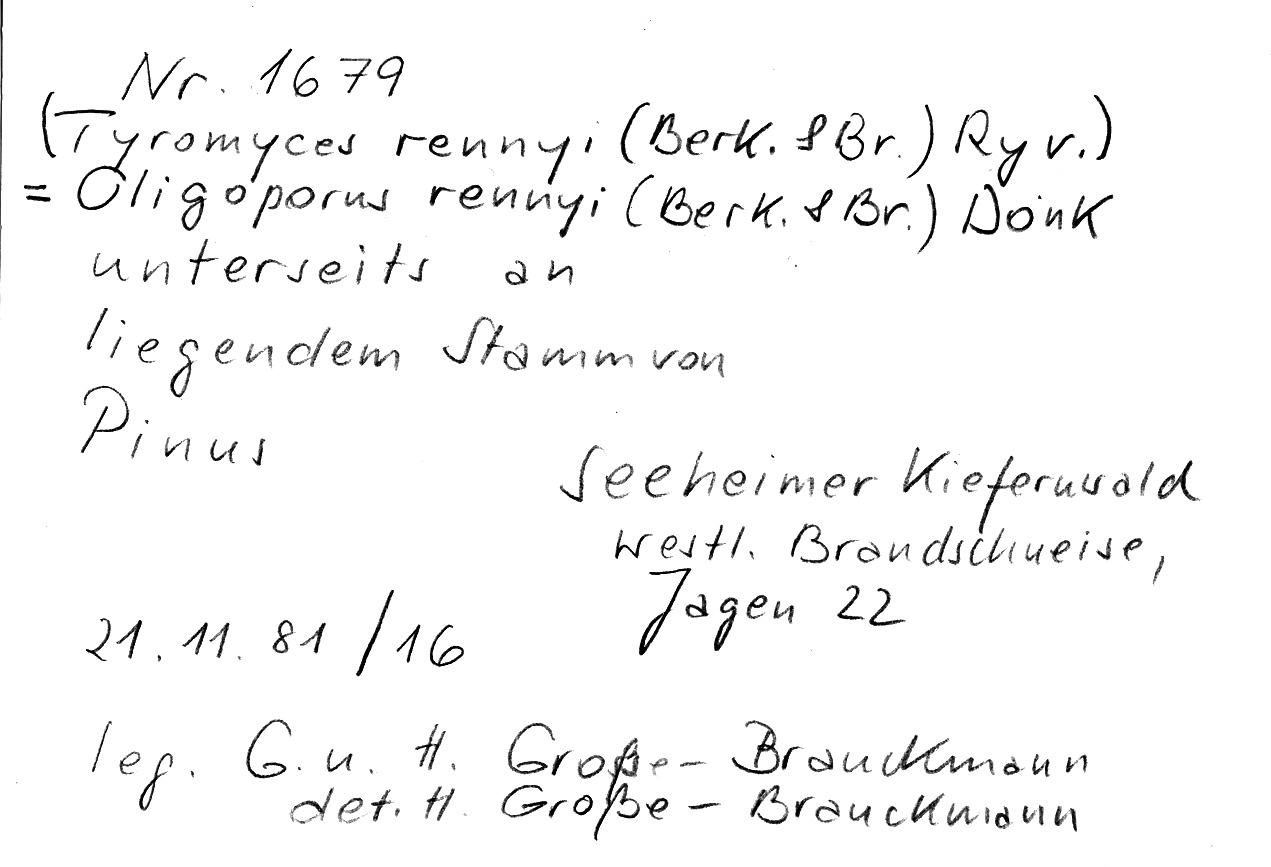 Nr. 1679
(Tyromyces rennyi (Berk. & Br.) Ryv.)
= Oligoporus rennyi (Berk. & Br.) Donk
unterseits an
liegendem Stamm von
Pinus
Seeheimer Kiefernwald
westl. Brandschneise,
Jagen 22
21.11.81/16
leg. G. u. H. Große-Brauckmann
det. H. Große-Brauckmann